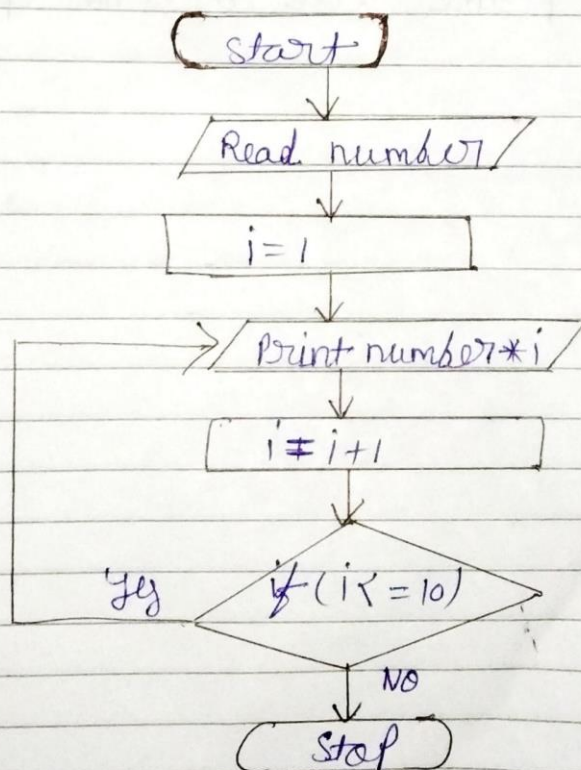 start
Read number
i = 1
Print number * i
i = i + 1
if (i < = 10)
Yes
NO
Stop